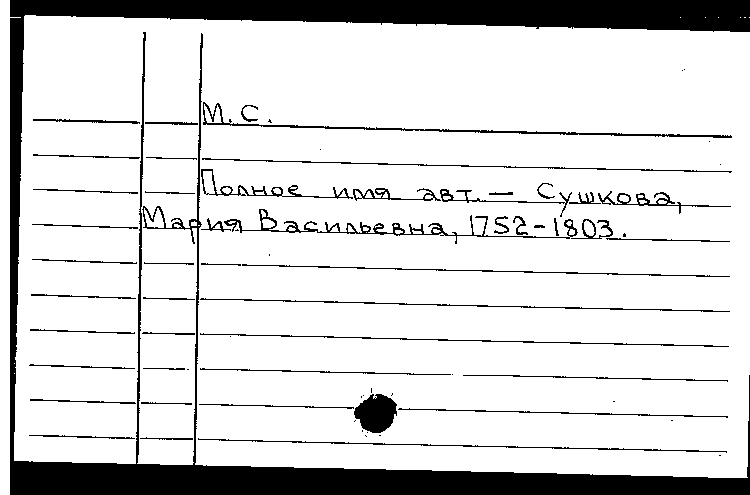 М. С.
Полное имя авт. — Сушкова,
Мария Васильевна, 1752-1803.